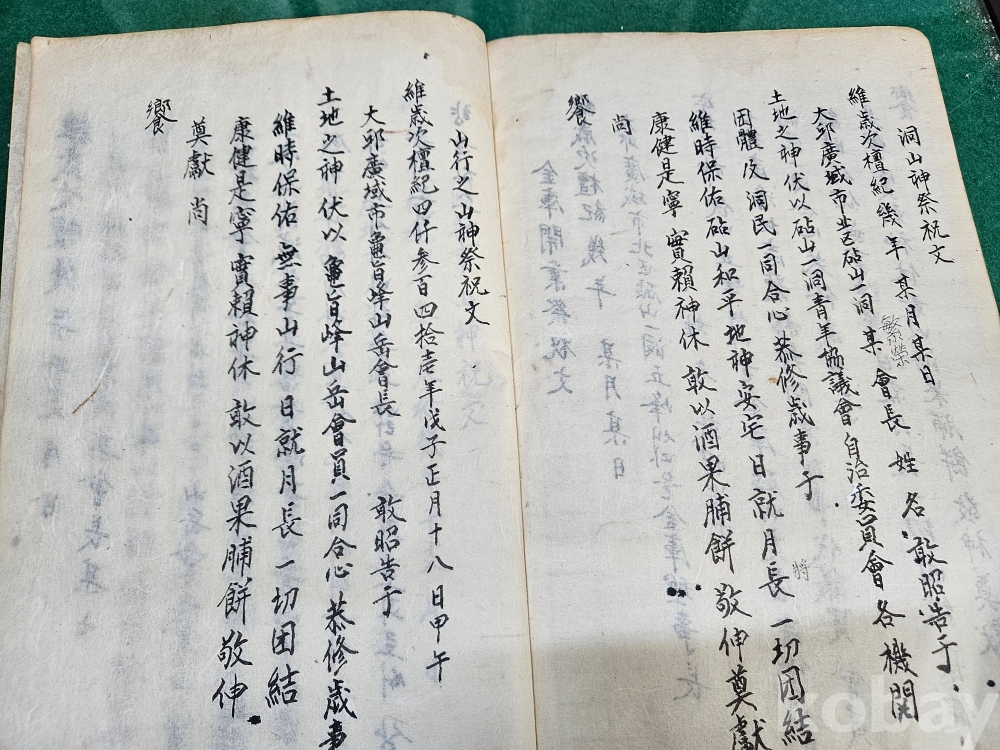 洞山神祭祝文
維歲次檀紀幾年 某月某日
繁榮
大邱廣域市北區砧山一洞 某 會長 姓名 敢昭告于
土地之神伏以砧山一洞青年協議會自治委員會各機關
団體及洞民一同合心 恭修歲事于
維時保佑砧山和平地神安宅日就月長 一切団結
將
康健是寧 實賴神休 敢以酒果脯餅 敬伸奠獻
尚
饗
山行之山神祭祝文
維歲次檀紀四仟參百四拾壱年戊子正月十八日甲午
大邱廣域市龜旨峰山岳會長 敢昭告于
土地之神伏以龜旨峰山岳會員一同合心 恭修歲事
維時保佑無事山行日就月長 一切団結
康健是寧 實賴神休 敢以酒果脯餅 敬伸
奠獻 尚
饗
kobay